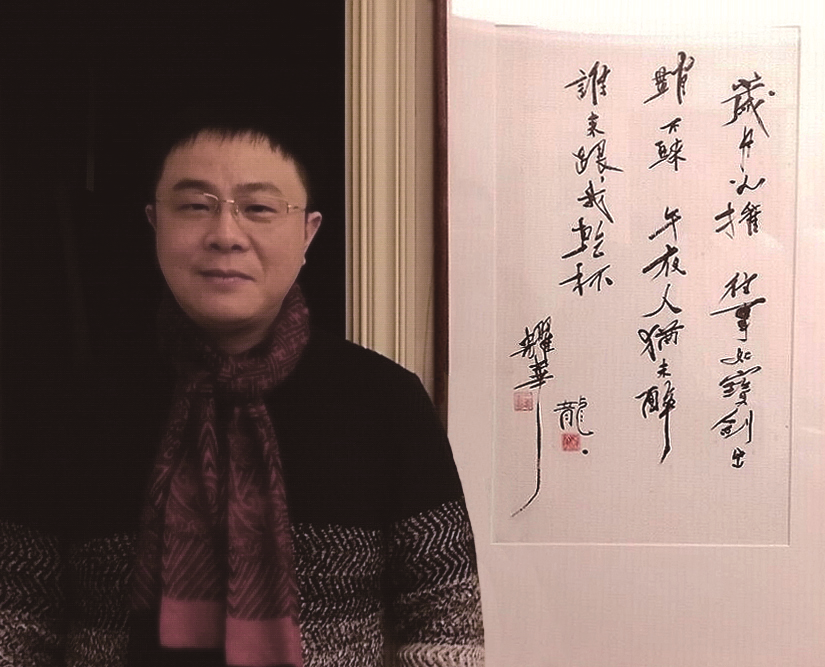 歲月 摧 往事如寶劍出
鞘不 午夜人猶未醉
誰來跟我乾杯
耀華
龍